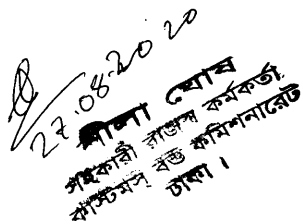 27.08.2020
লীলা ঘোষ
সহকারী রাজস্ব কর্মকর্তা
কাস্টমস্ বন্ড কমিশনারেট
ঢাকা।